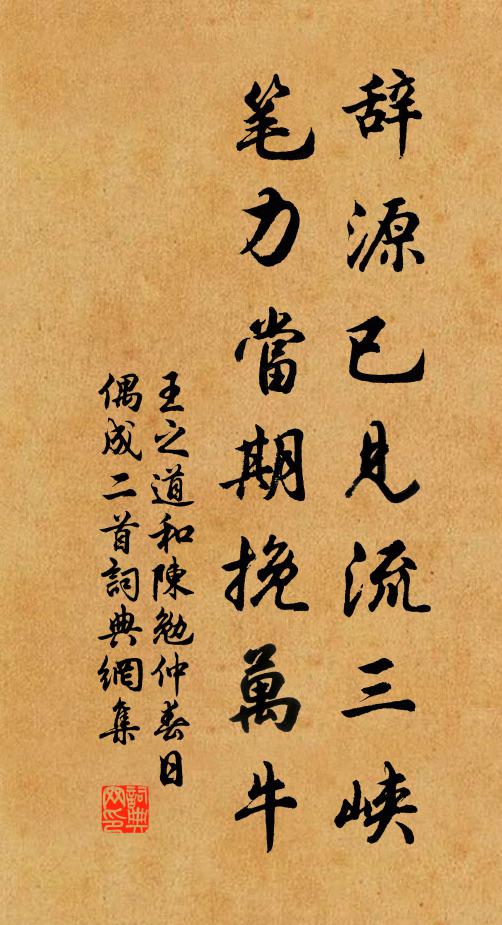 辞源已见流三峡
笔力當期挽萬牛
王之道和陳勉仲春日
偶成二首詞典網集
詞典
网印